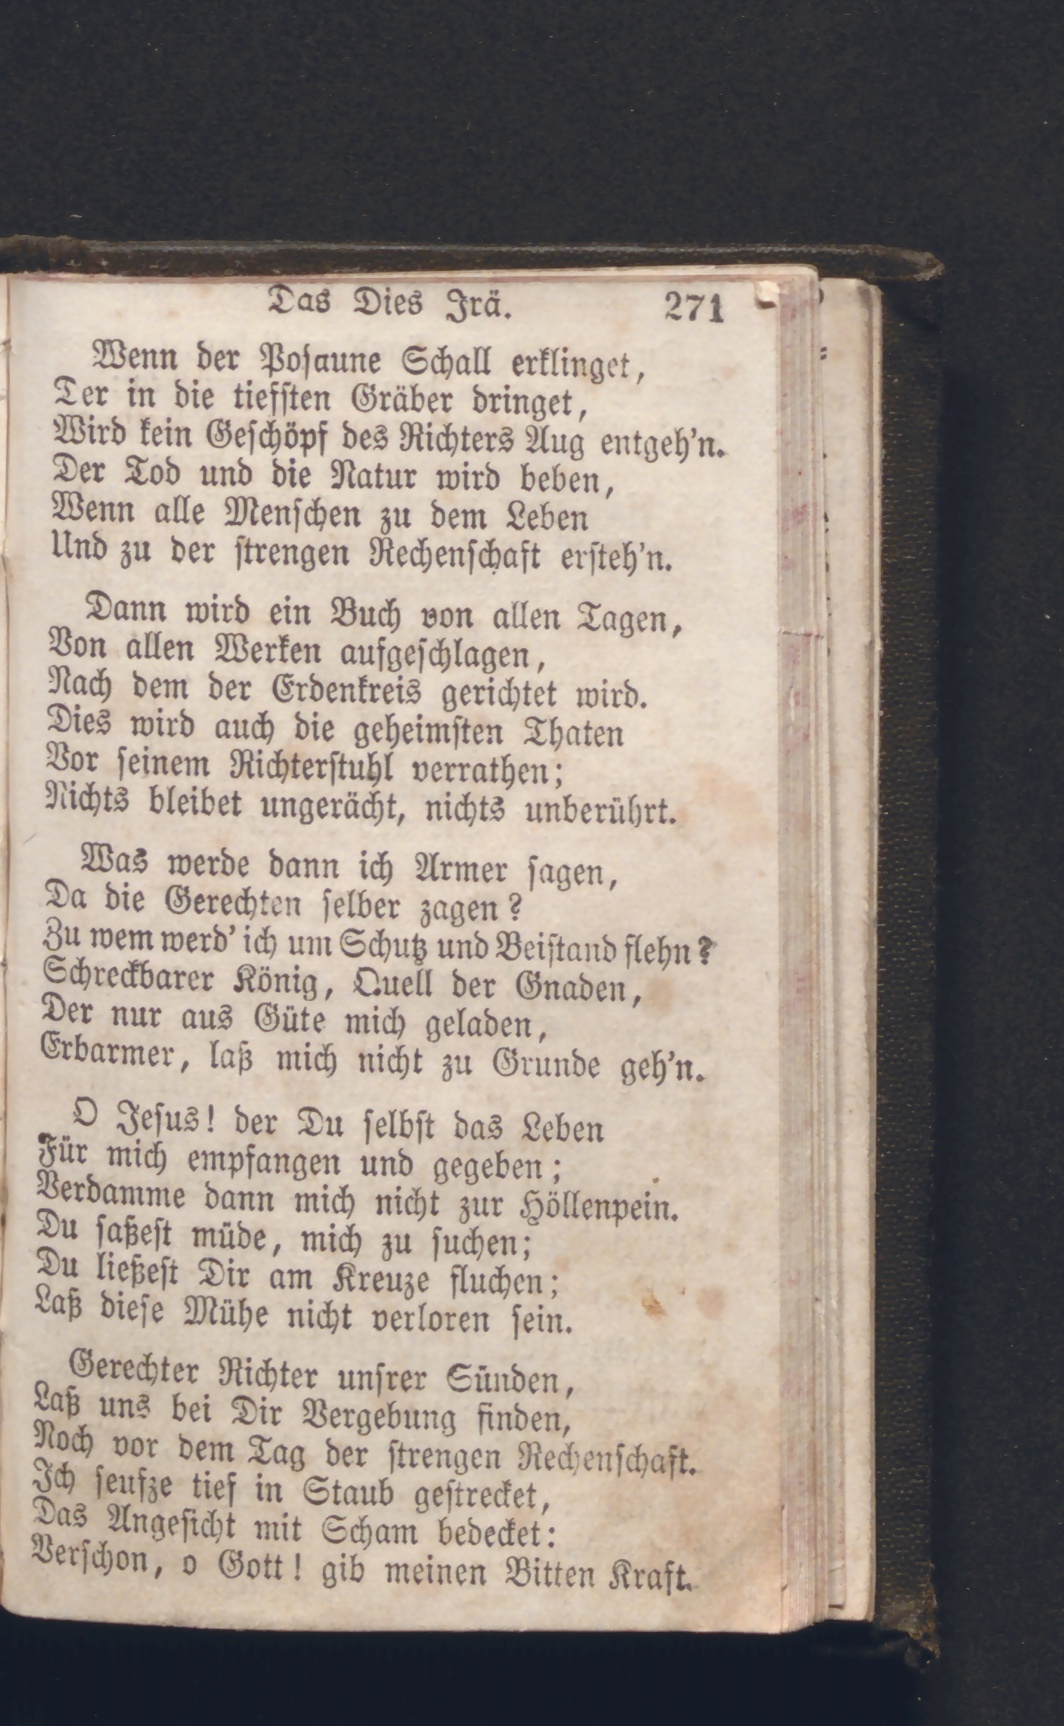 Das Dies Irä. 271
Wenn der Posaune Schall erklinget,
Ter in die tiefsten Gräber dringet,
Wird kein Geschöpf des Richters Aug entgeh'n.
Der Tod und die Natur wird beben,
Wenn alle Menschen zu dem Leben
Und zu der strengen Rechenschaft ersteh'n.
Dann wird ein Buch von allen Tagen,
Von allen Werken aufgeschlagen,
Nach dem der Erdenkreis gerichtet wird.
Dies wird auch die geheimsten Thaten
Vor seinem Richterstuhl verrathen;
Nichts bleibet ungerächt, nichts unberührt.
Was werde dann ich Armer sagen,
Da die Gerechten selber zagen?
Zu wem werd' ich um Schutz und Beistand flehn?
Schreckbarer König, Quell der Gnaden,
Der nur aus Güte mich geladen,
Erbarmer, laß mich nicht zu Grunde geh'n.
O Jesus! der Du selbst das Leben
Für mich empfangen und gegeben;
Verdamme dann mich nicht zur Höllenpein.
Du saßest müde, mich zu suchen;
Du ließest Dir am Kreuze fluchen;
Laß diese Mühe nicht verloren sein.
Gerechter Richter unsrer Sünden,
Laß uns bei Dir Vergebung finden,
Noch vor dem Tag der strengen Rechenschaft.
Ich seufze tief in Staub gestrecket,
Das Angesicht mit Scham bedecket:
Verschon, o Gott! gib meinen Bitten Kraft.